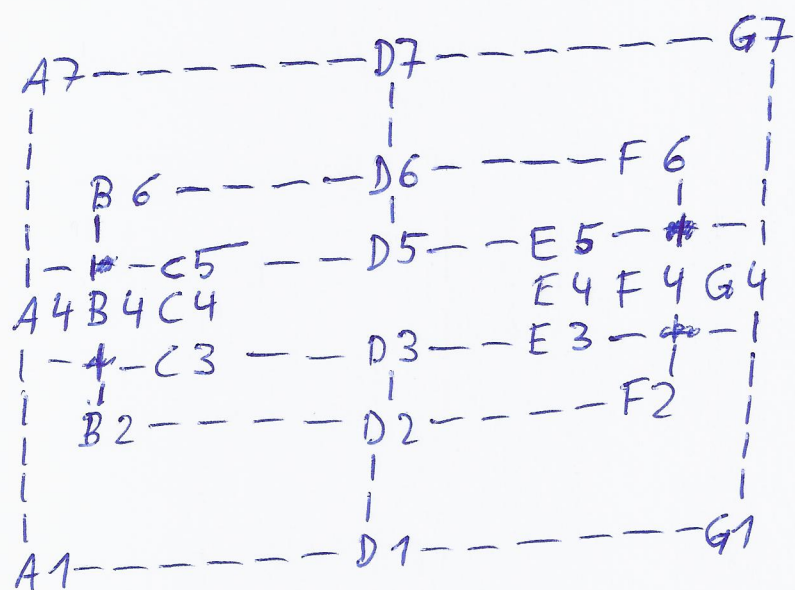 A7-------D7-------G7
B6----D6----F6
C5--D5--E5
A4B4C4 E4F4G4
C3--D3--E3
B2-----D2----F2
A1------D1------G1